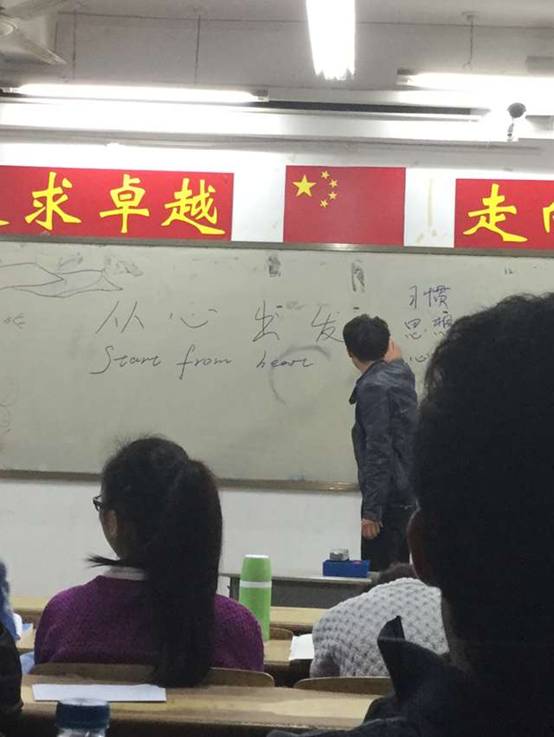 求卓越
走向
从心出发
Start from heart
习惯
思想
心